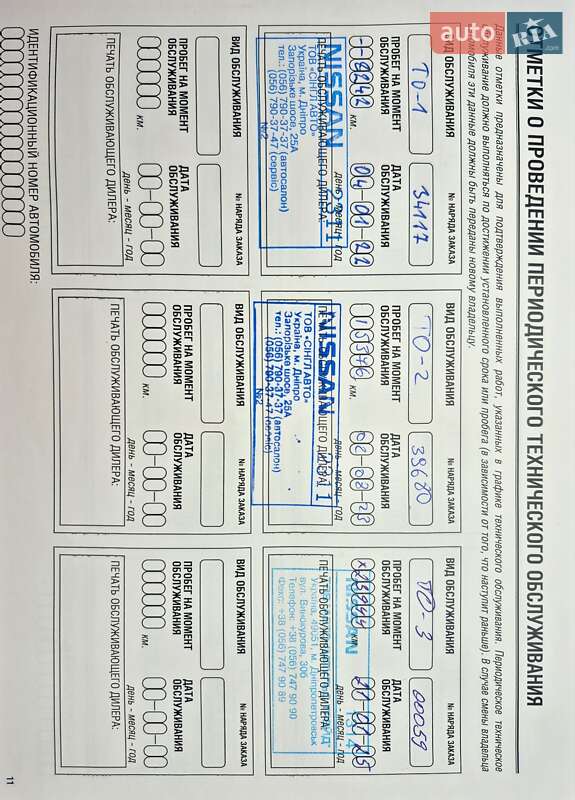 auto RIA.com
ОТМЕТКИ О ПРОВЕДЕНИИ ПЕРИОДИЧЕСКОГО ТЕХНИЧЕСКОГО ОБСЛУЖИВАНИЯ
Данные отметки предназначены для подтверждения выполненных работ, указанных в графике технического обслуживания. Периодическое техническое
обслуживание должно выполняться по достижении установленного срока или пробега (в зависимости от того, что наступит раньше). В случае смены владельца
автомобиля эти данные должны быть переданы новому владельцу.
ВИД ОБСЛУЖИВАНИЯ
№ НАРЯДА ЗАКАЗА
ТО-1
34117
ПРОБЕГ НА МОМЕНТ ОБСЛУЖИВАНИЯ
ДАТА ОБСЛУЖИВАНИЯ
КМ.
04-01-22
день - месяц - год
ПЕЧАТЬ ОБСЛУЖИВАЮЩЕГО ДИЛЕРА:
NISSAN 2311
ТОВ «СІНГЛАВТО»
Україна, м. Дніпро
Запорізьке шосе, 25А
тел.: (056) 790-37-37 (автосалон)
(056) 790-37-47 (сервіс)
№2
ВИД ОБСЛУЖИВАНИЯ
№ НАРЯДА ЗАКАЗА
ТО-2
ПРОБЕГ НА МОМЕНТ ОБСЛУЖИВАНИЯ
ДАТА ОБСЛУЖИВАНИЯ
КМ.
02-02-23
день - месяц - год
ПЕЧАТЬ ОБСЛУЖИВАЮЩЕГО ДИЛЕРА:
NISSAN 2311
ТОВ «СІНГЛАВТО»
Україна, м. Дніпро
Запорізьке шосе, 25А
тел.: (056) 790-37-37 (автосалон)
(056) 790-37-47 (сервіс)
№2
ВИД ОБСЛУЖИВАНИЯ
№ НАРЯДА ЗАКАЗА
ТО-3
00059
ПРОБЕГ НА МОМЕНТ ОБСЛУЖИВАНИЯ
ДАТА ОБСЛУЖИВАНИЯ
КМ.
день - месяц - год
ПЕЧАТЬ ОБСЛУЖИВАЮЩЕГО ДИЛЕРА:
NISSAN
Україна, 49051, м. Дніпропетровськ
вул. Винокурова, 30б
Телефон: +38 (056) 747 90 90
Факс: +38 (056) 747 90 89
ВИД ОБСЛУЖИВАНИЯ
№ НАРЯДА ЗАКАЗА
ПРОБЕГ НА МОМЕНТ ОБСЛУЖИВАНИЯ
ДАТА ОБСЛУЖИВАНИЯ
КМ.
день - месяц - год
ПЕЧАТЬ ОБСЛУЖИВАЮЩЕГО ДИЛЕРА:
ВИД ОБСЛУЖИВАНИЯ
№ НАРЯДА ЗАКАЗА
ПРОБЕГ НА МОМЕНТ ОБСЛУЖИВАНИЯ
ДАТА ОБСЛУЖИВАНИЯ
КМ.
день - месяц - год
ПЕЧАТЬ ОБСЛУЖИВАЮЩЕГО ДИЛЕРА:
ВИД ОБСЛУЖИВАНИЯ
№ НАРЯДА ЗАКАЗА
ПРОБЕГ НА МОМЕНТ ОБСЛУЖИВАНИЯ
ДАТА ОБСЛУЖИВАНИЯ
КМ.
день - месяц - год
ПЕЧАТЬ ОБСЛУЖИВАЮЩЕГО ДИЛЕРА:
ИДЕНТИФИКАЦИОННЫЙ НОМЕР АВТОМОБИЛЯ:
11